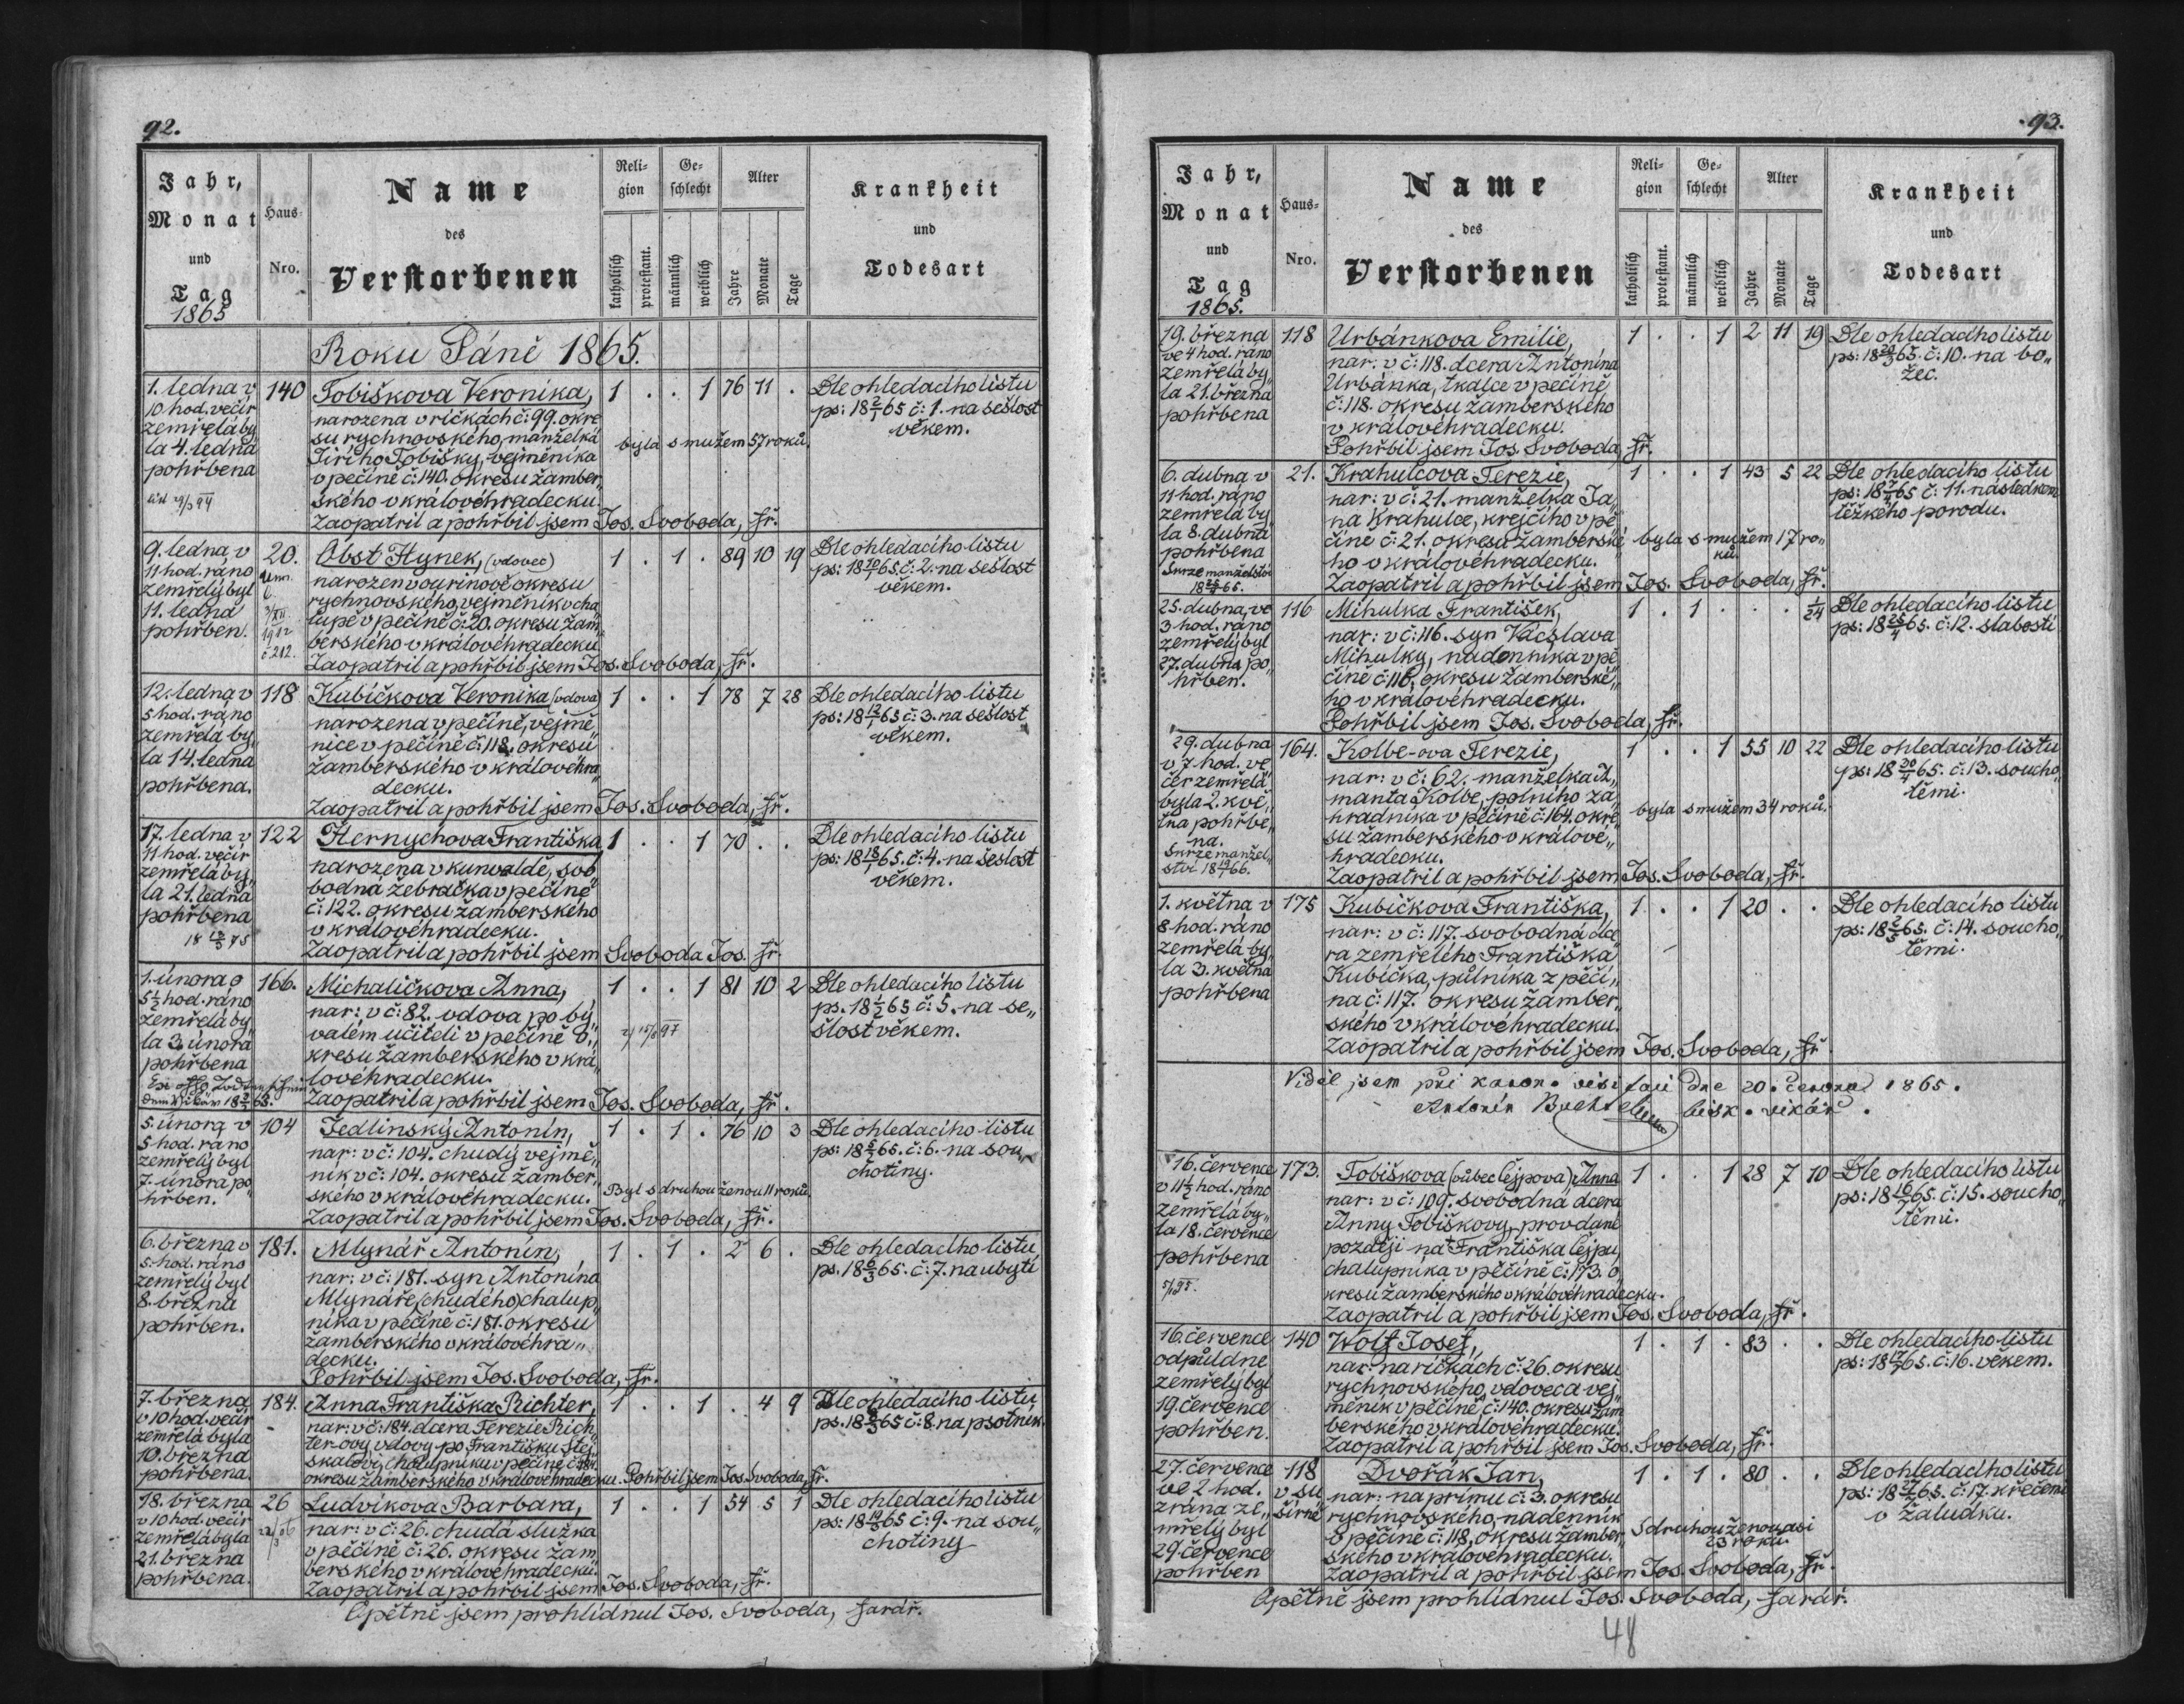 92.
Jahr, Monat und Tag
1865
Haus-Nro.
Name des Verstorbenen
Religion
katholisch
protestant.
Geschlecht
männlich
weiblich
Alter
Jahre
Monate
Tage
Krankheit und Todesart
Roku Páně 1865.
1. ledna v
10 hod. večír
zemřelá by„
la 4. ledna
pohřbena
140
Tobiškova Veronika,
narozena v ričkách č: 99. okre
su rychnovského, manželka
Jiřího Tobišky, vejměníka
v pečíně č: 140. okresu žamber„
ského v královéhradecku.
Zaopatril a pohřbil jsem Jos. Svoboda, fř.
1 . . 1 76 11 .
byla s mužem 57 roků.
Dle ohledacího listu
ps: 18 2/1 65 č: 1. na sešlost
věkem.
9. ledna v
11 hod. ráno
zemřelý byl
11. ledna
pohřben.
20.
3/XII
1912
č 212.
Obst Hynek, (vdovec)
narozen v ouřinově okresu
rychnovského, vejměník v cha„
lupě v pečíně č: 20. okresu žam„
berského v královéhradecku
Zaopatril a pohřbil jsem Jos. Svoboda, fř.
1 . 1 . 89 10 19
Dle ohledacího listu
ps: 18 10/1 65 č: 2. na sešlost
věkem.
12. ledna v
5 hod. ráno
zemřelá by„
la 14. ledna
pohřbena.
118
Kubíčkova Veronika (vdova)
narozena v pečíně, vejmě„
nice v pečíně č: 118. okresu
žamberského v královéhra„
decku.
Zaopatril a pohřbil jsem Jos. Svoboda, fř.
1 . . 1 78 7 28
Dle ohledacího listu
ps: 18 12/1 65 č: 3. na sešlost
věkem.
17. ledna v
11 hod. večír
zemřelá by„
la 21. ledna
pohřbena
122
Hernychova Františka
narozena v kunvaldě, svo„
bodná žebračka v pečíně
č: 122. okresu žamberského
v královéhradecku.
Zaopatril a pohřbil jsem Svoboda Jos. fř.
1 . . 1 70 . .
Dle ohledacího listu
ps: 18 18/1 65. č: 4. na sešlost
věkem.
1. února o
5½ hod. ráno
zemřelá by„
la 3. února
pohřbena
166.
Michaličkova Anna,
nar: v č: 82. vdova po bý„
valém učiteli v pečíně o„
kresu žamberského v krá„
lovéhradecku.
Zaopatril a pohřbil jsem Jos. Svoboda, fř.
1 . . 1 81 10 2
Dle ohledacího listu
ps. 18 1/2 65 č: 5. na se„
šlost věkem.
5. února v
5 hod. ráno
zemřelý byl
7. února po„
hřben.
104
Jedlinský Antonín,
nar: v č: 104. chudý vejmě„
ník v č: 104. okresu žamber„
ského v královéhradecku.
Zaopatril a pohřbil jsem Jos. Svoboda, fř.
1 . 1 . 76 10 3
Byl s druhou ženou 11 roků.
Dle ohledacího listu
ps: 18 5/2 65. č: 6. na sou„
chotiny.
6. března v
5. hod. ráno
zemřelý byl
8. března
pohřben.
181.
Mlynář Antonín,
nar: v č: 181. syn Antonína
Mlynáře, (chudého) chalup„
níka v pečíně č: 181. okresu
žamberského v královéhra„
decku.
Pohřbil jsem Jos. Svoboda, fř.
1 . 1 . 2 6 .
Dle ohledacího listu
ps. 18 6/3 65. č: 7. na ubytí
7. března
v 10 hod. večír
zemřelá byla
10. března
pohřbena.
184.
Anna Františka Richter,
nar: v č: 184. dcera Terezie Rich„
ter-ovy, vdovy po Františku Stej„
skalovi, chalupníku v pečíně č: 184.
okresu žamberského v královéhradecku. Pohřbil jsem Jos. Svoboda, fř.
1 . . 1 . 4 9
Dle ohledacího listu
ps. 18 8/3 65 č: 8. na psotník.
18. března
v 10 hod. večír
zemřelá byla
21. března
pohřbena.
26
Ludvíkova Barbara,
nar: v č: 26. chudá služka
v pěčíně č: 26. okresu žam„
berského v královéhradecku.
Zaopatril a pohřbil jsem Jos. Svoboda, fř.
1 . . 1 54 5 1
Dle ohledacího listu
ps: 18 19/3 65 č: 9. na sou„
chotiny
Opětně jsem prohlídnul Jos. Svoboda, farář.
93.
Jahr, Monat und Tag
1865.
Haus-Nro.
Name des Verstorbenen
Religion
katholisch
protestant.
Geschlecht
männlich
weiblich
Alter
Jahre
Monate
Tage
Krankheit und Todesart
19. března
ve 4 hod. ráno
zemřelá by„
la 21. března
pohřbena
118
Urbánkova Emilie,
nar: v č: 118. dcera Antonína
Urbánka, tkalce v pečíně
č: 118. okresu žamberského
v královéhradecku.
Pohřbil jsem Jos. Svoboda, fř.
1 . . 1 2 11 19
Dle ohledacího listu
ps: 18 20/3 65. č: 10. na bo„
žec.
6. dubna v
11 hod. ráno
zemřelá by„
la 8. dubna
pohřbena
Skrze manželství
21.
Krahulcova Terezie,
nar: v č: 21. manželka Ja„
na Krahulce, krejčího v pe„
číně č: 21. okresu žamberské
ho v královéhradecku.
Zaopatril a pohřbil jsem Jos. Svoboda, fř.
1 . . 1 43 5 22
byla s mužem 17 ro„
ků.
Dle ohledacího listu
ps: 18 7/4 65 č: 11. následkem
těžkého porodu.
25. dubna, ve
3 hod. ráno
zemřelý byl
27. dubna po„
hřben.
116
Mihulka František,
nar: v č: 116. syn Václava
Mihulky, nadenníka v pe„
číně č: 116, okresu žamberské„
ho v královéhradecku.
Pohřbil jsem Jos. Svoboda, fř.
1 . 1 . . . 1/24
Dle ohledacího listu
ps: 18 25/4 65. č: 12. slabostí
29. dubna
v 7 hod. ve„
čer zemřelá
byla 2. kvě„
tna pohřbe„
na.
Skrze manžel„
ství 18 19/1 66.
164.
Kolbe-ova Terezie,
nar: v č: 62. manželka A„
manta Kolbe, polního za„
hradníka v pěčíně č: 164. okre„
su žamberského v králové„
hradecku.
Zaopatril a pohřbil jsem Jos. Svoboda, fř.
1 . . 1 55 10 22
byla s mužem 34 roků.
Dle ohledacího listu
ps: 18 30/4 65. č: 13. soucho„
těmi.
1. května v
8 hod. ráno
zemřelá by„
la 3. května
pohřbena
175
Kubíčkova Františka,
nar: v č: 117. svobodná dce„
ra zemřelého Františka
Kubíčka, půlníka z pěčí„
na č: 117. okresu žamber„
ského v královéhradecku.
Zaopatril a pohřbil jsem Jos. Svoboda, fř.
1 . . 1 20 . .
Dle ohledacího listu
ps: 18 2/5 65. č: 14. soucho„
těmi.
Viděl jsem při kanon. visitaci dne 20. června 1865.
Antonín Buchtel bisk. vikář.
16. července
v 11½ hod. ráno
zemřelá by„
la 18. července
pohřbena
173.
Tobiškova (vůbec Čejpova) Anna
nar: v č: 109. svobodná dcera
Anny Tobiškovy, provdané
pozatji na Františka Čejpu,
chalupníka v pěčíně č: 173. o„
kresu žamberského v královéhradecku.
Zaopatril a pohřbil jsem Jos. Svoboda, fř.
1 . . 1 28 7 10
Dle ohledacího listu
ps: 18 16/7 65. č: 15. soucho„
těmi.
16. července
odpůldne
zemřelý byl
19. července
pohřben.
140
Wolf Josef,
nar: na ričkách č: 26. okresu
rychnovského, vdovec a vej„
měník v pěčíně č: 140. okresu žam„
berského v královéhradecku.
Zaopatril a pohřbil jsem Jos. Svoboda, fř.
1 . 1 . 83 . .
Dle ohledacího listu
ps: 18 17/7 65. č: 16. věkem.
27. července
ve 2 hod.
zrána ze„
mřelý byl
29. července
pohřben
118
v su„
šírně
Dvořák Jan,
nar: na prímu č: 3. okresu
rychnovského, nadenník
v pěčíně č: 118, okresu žamber„
ského v královéhradecku.
Zaopatril a pohřbil jsem Jos. Svoboda, fř.
1 . 1 . 80 . .
S druhou ženou asi
23 roků.
Dle ohledacího listu
ps: 18 27/7 65. č: 17. křečemi
v žaludku.
Opětně jsem prohlídnul Jos. Svoboda, farář.
48